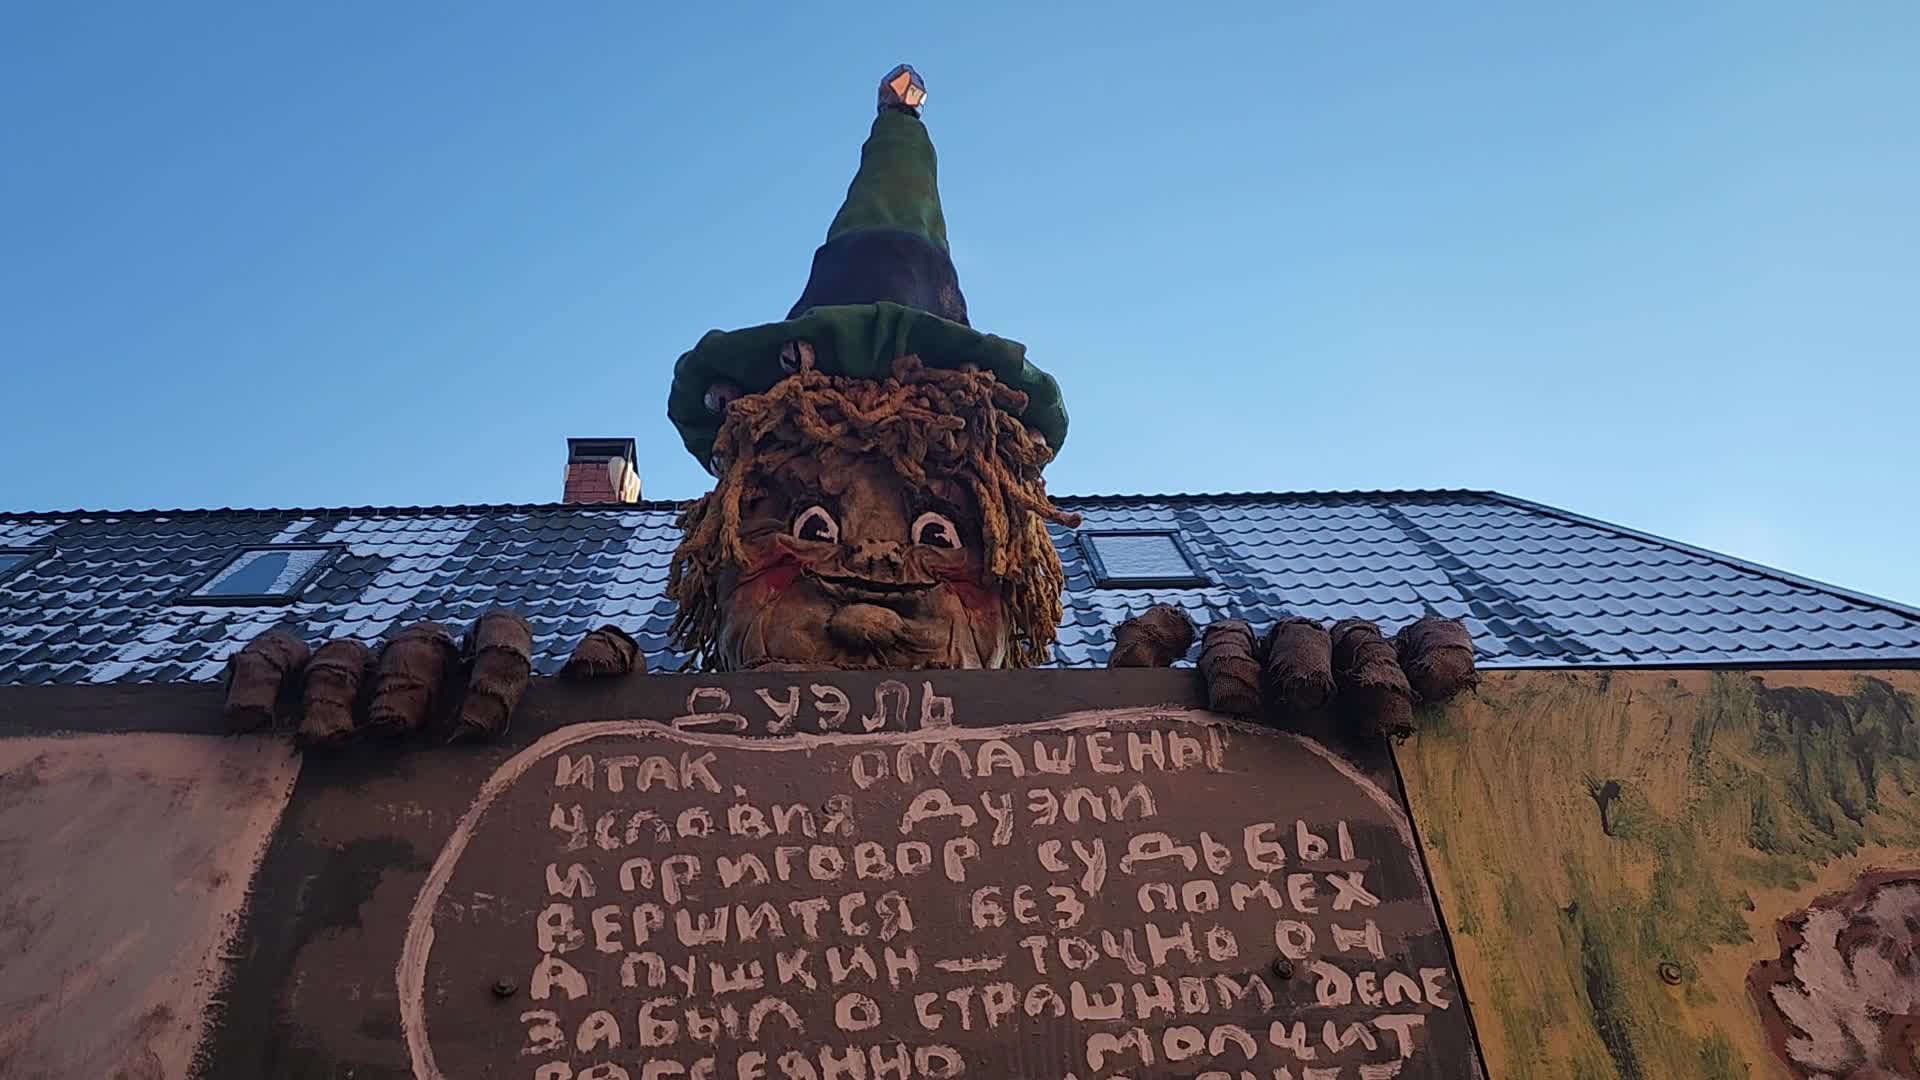 ДУЭЛЬ
ИТАК, ОГЛАШЕНЫ
УСЛОВИЯ ДУЭЛИ
И ПРИГОВОР СУДЬБЫ
ВЕРШИТСЯ БЕЗ ПОМЕХ
А ПУШКИН — ТОЧНО ОН
ЗАБЫЛ О СТРАШНОМ ДЕЛЕ
РАССЕЯННО МОЛЧИТ